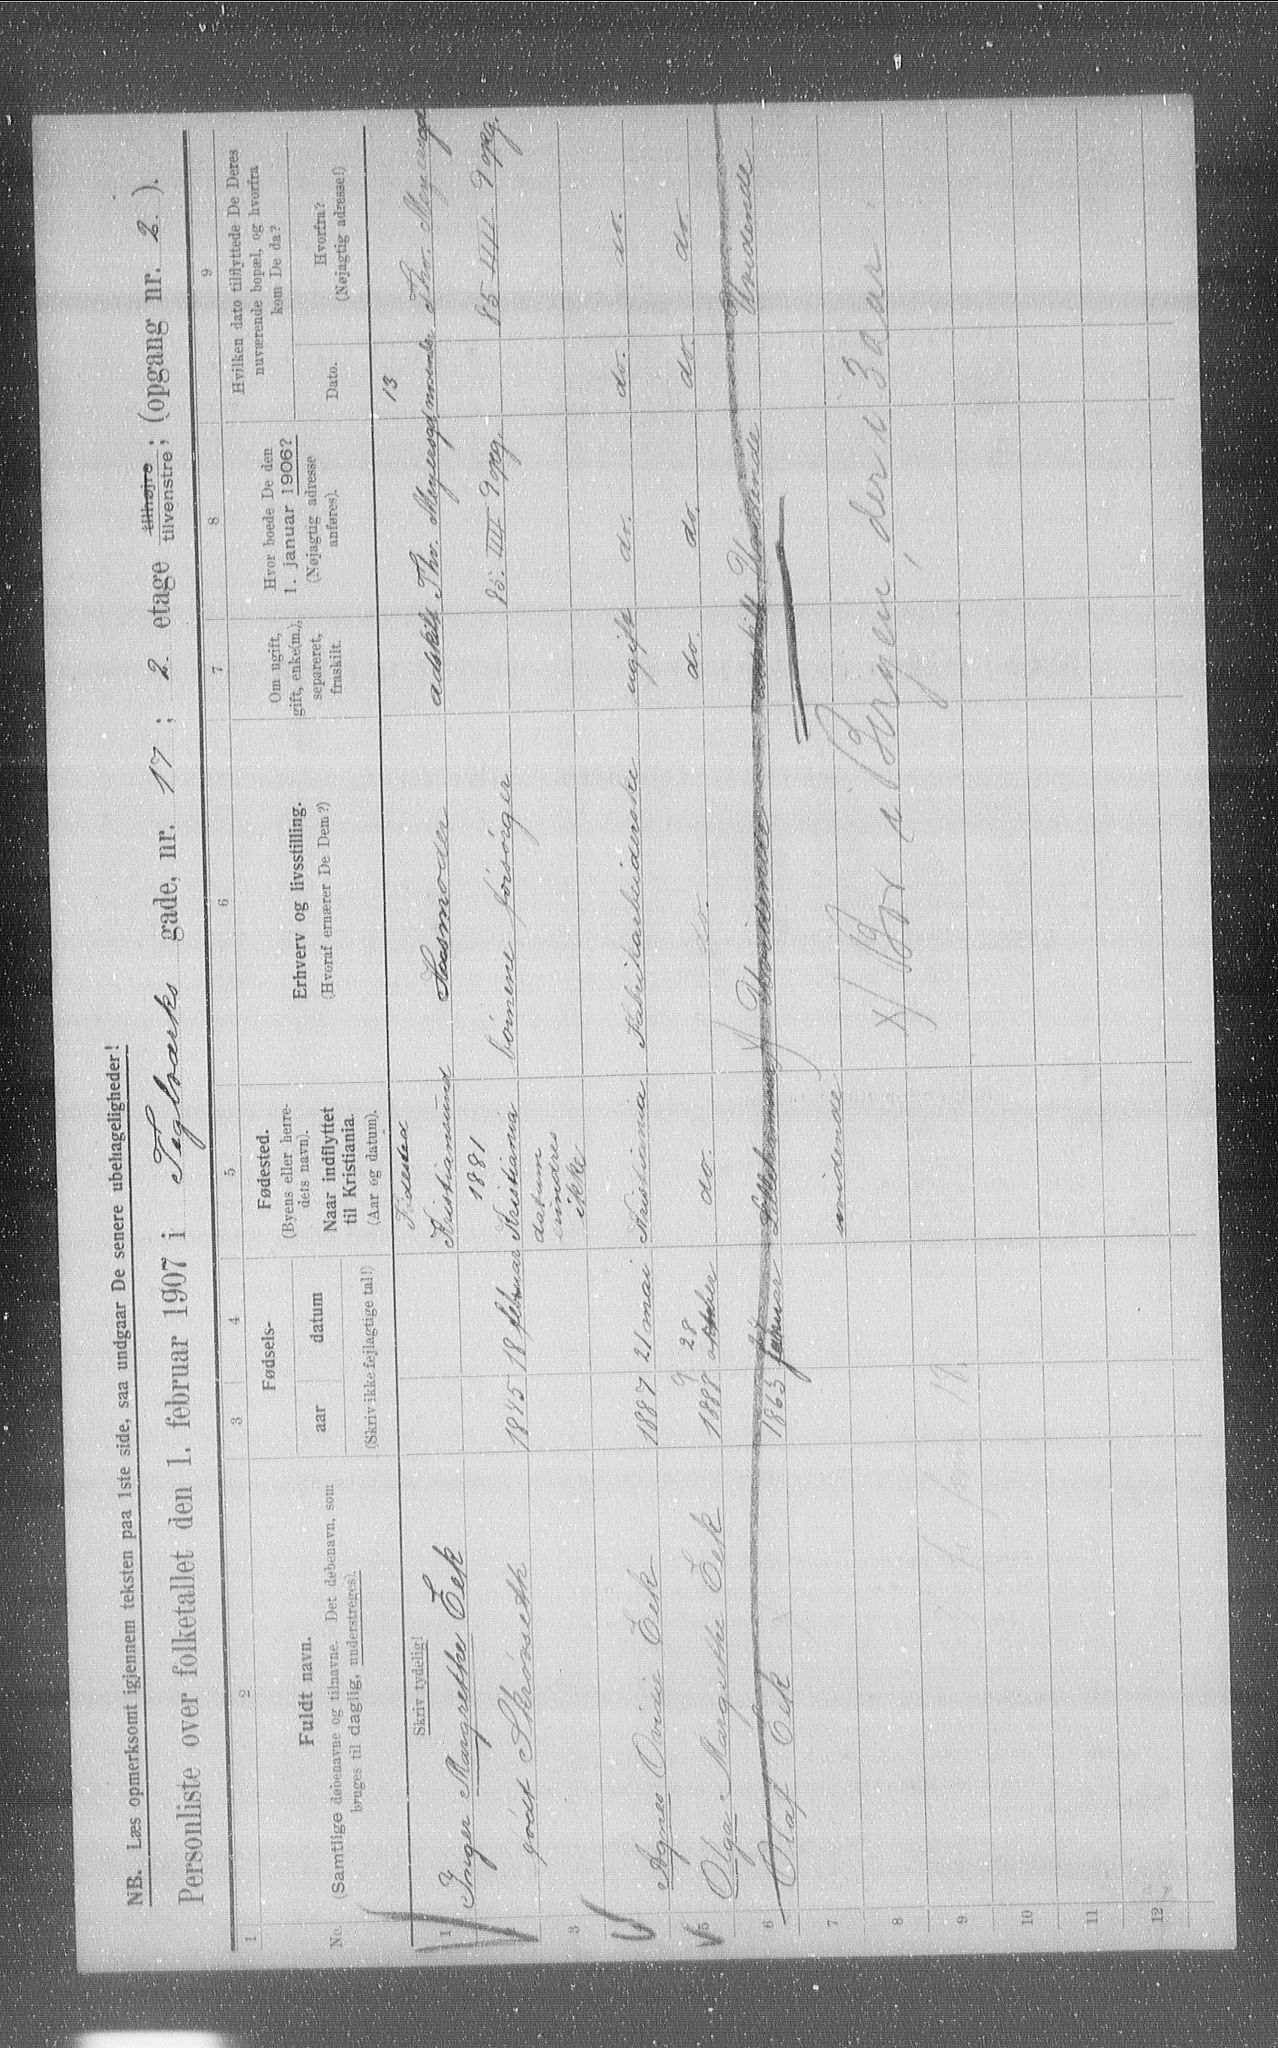 NB. Læs opmerksomt igjennem teksten paa 1ste side, saa undgaar De senere ubehageligheder!
Personliste over folketallet den 1. februar 1907 i Teglværks gade, nr. 17; 2 etage tilhøjre tilvenstre; (opgang nr. 2.).
1 2 3 4 5 6 7 8 9
No.
Fuldt navn.
(Samtlige døbenavne og tilnavne. Det døbenavn, som
bruges til daglig, understreges).
Fødsels-
aar datum
(Skriv ikke fejlagtige tal!)
Fødested.
(Byens eller herre-
dets navn).
Naar indflyttet
til Kristiania.
(Aar og datum).
Erhverv og livsstilling.
(Hvoraf ernærer De Dem?)
Om ugift,
gift, enke(m.),
separeret,
fraskilt.
Hvor boede De den
1. januar 1906?
(Nøjagtig adresse
anføres).
Hvilken dato tilflyttede De Deres
nuværende bopæl, og hvorfra
kom De da?
Dato.
Hvorfra?
(Nøjagtig adresse!)
Skriv tydelig!
Fødested 13
1 Inger Margrethe Eek Kristiansund Husmoder adskilt Thv. Meyersgd november Thv. Meyersgd
1881
født 1845 18 februar Kristiania børnene forsørger 85 IIII 9 opg. 85 IIII 9 opg.
datum
3 emdres
ikke
Agnes Ovidie Eek 1887 21 mai Kristiania Fabrikarbeiderske ugift do. do. do.
5 Olga Margrethe Eek 1888 28 do. do. do. do. do. do.
6 Olaf Eek 1863 februar x) Uvidende Uvidende
7 uvidende
8 x) Bor i Bergen, der i 3 aar
9
10
11
12